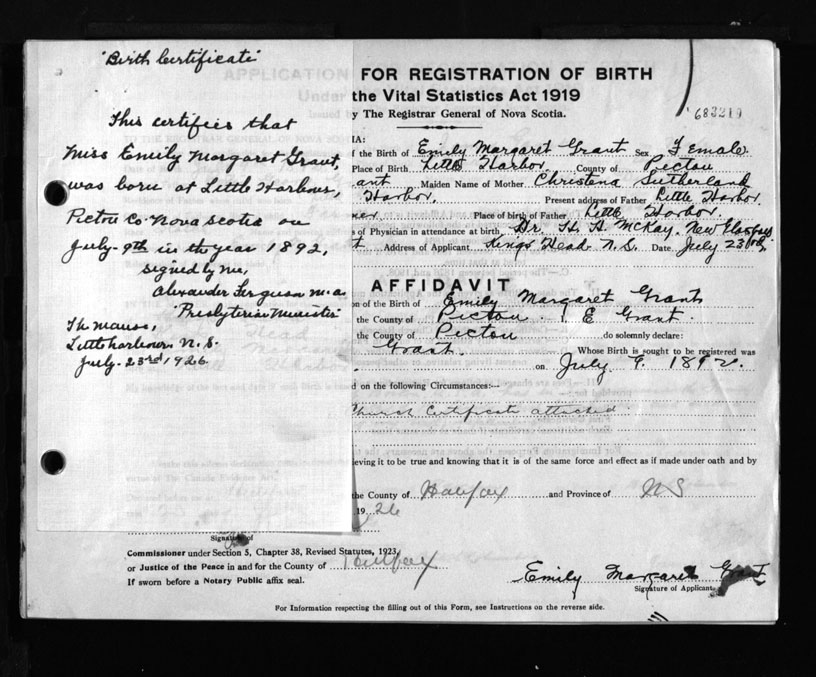 "Birth Certificate"
This certifies that
Miss Emily Margaret Grant,
was born at Little Harbour,
Pictou Co. Nova Scotia on
July 9th in the year 1892,
signed by me,
Alexander Ferguson M.A.
Presbyterian Minister
The Manse,
Little harbour N.S.
July 23rd 1926
APPLICATION FOR REGISTRATION OF BIRTH
Under the Vital Statistics Act 1919
y The Registrar General of Nova Scotia.
683219
IA:
of the Birth of Emily Margaret Grant Sex Female
Place of Birth Little Harbor County of Pictou
ant Maiden Name of Mother Christena Sutherland
Harbor. Present address of Father Little Harbor.
mer Place of birth of Father Little Harbor.
s of Physician in attendance at birth, Dr. H. H. McKay. New Glasgow
t Address of Applicant Kings Head N.S. Date July 23rd
AFFIDAVIT
on of the Birth of Emily Margaret Grant
the County of Pictou I E Grant.
the County of Pictou do solemnly declare:
Grant. Whose Birth is sought to be registered was
on July 9. 1892.
d on the following Circumstances:—
Church Certificate attached.
ieving it to be true and knowing that it is of the same force and effect as if made under oath and by
the County of Halifax and Province of NS
19 26
Signature of
Commissioner under Section 5, Chapter 38, Revised Statutes, 1923,
or Justice of the Peace in and for the County of Halifax
If sworn before a Notary Public affix seal.
Emily Margaret Grant
Signature of Applicant.
For Information respecting the filling out of this Form, see Instructions on the reverse side.